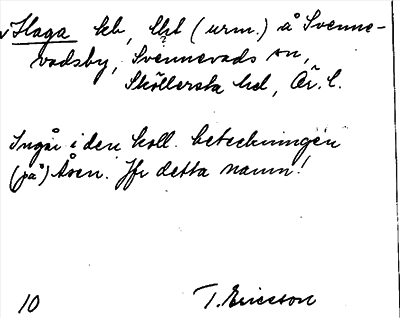 Haga kb, lht (urm.) å Svenne-
vadsby, Svennevads sn,
Sköllersta hd, Ör. l.
Ingår i den koll. beteckningen
(på) Åsen. Jfr detta namn!
10 T. Ericsson